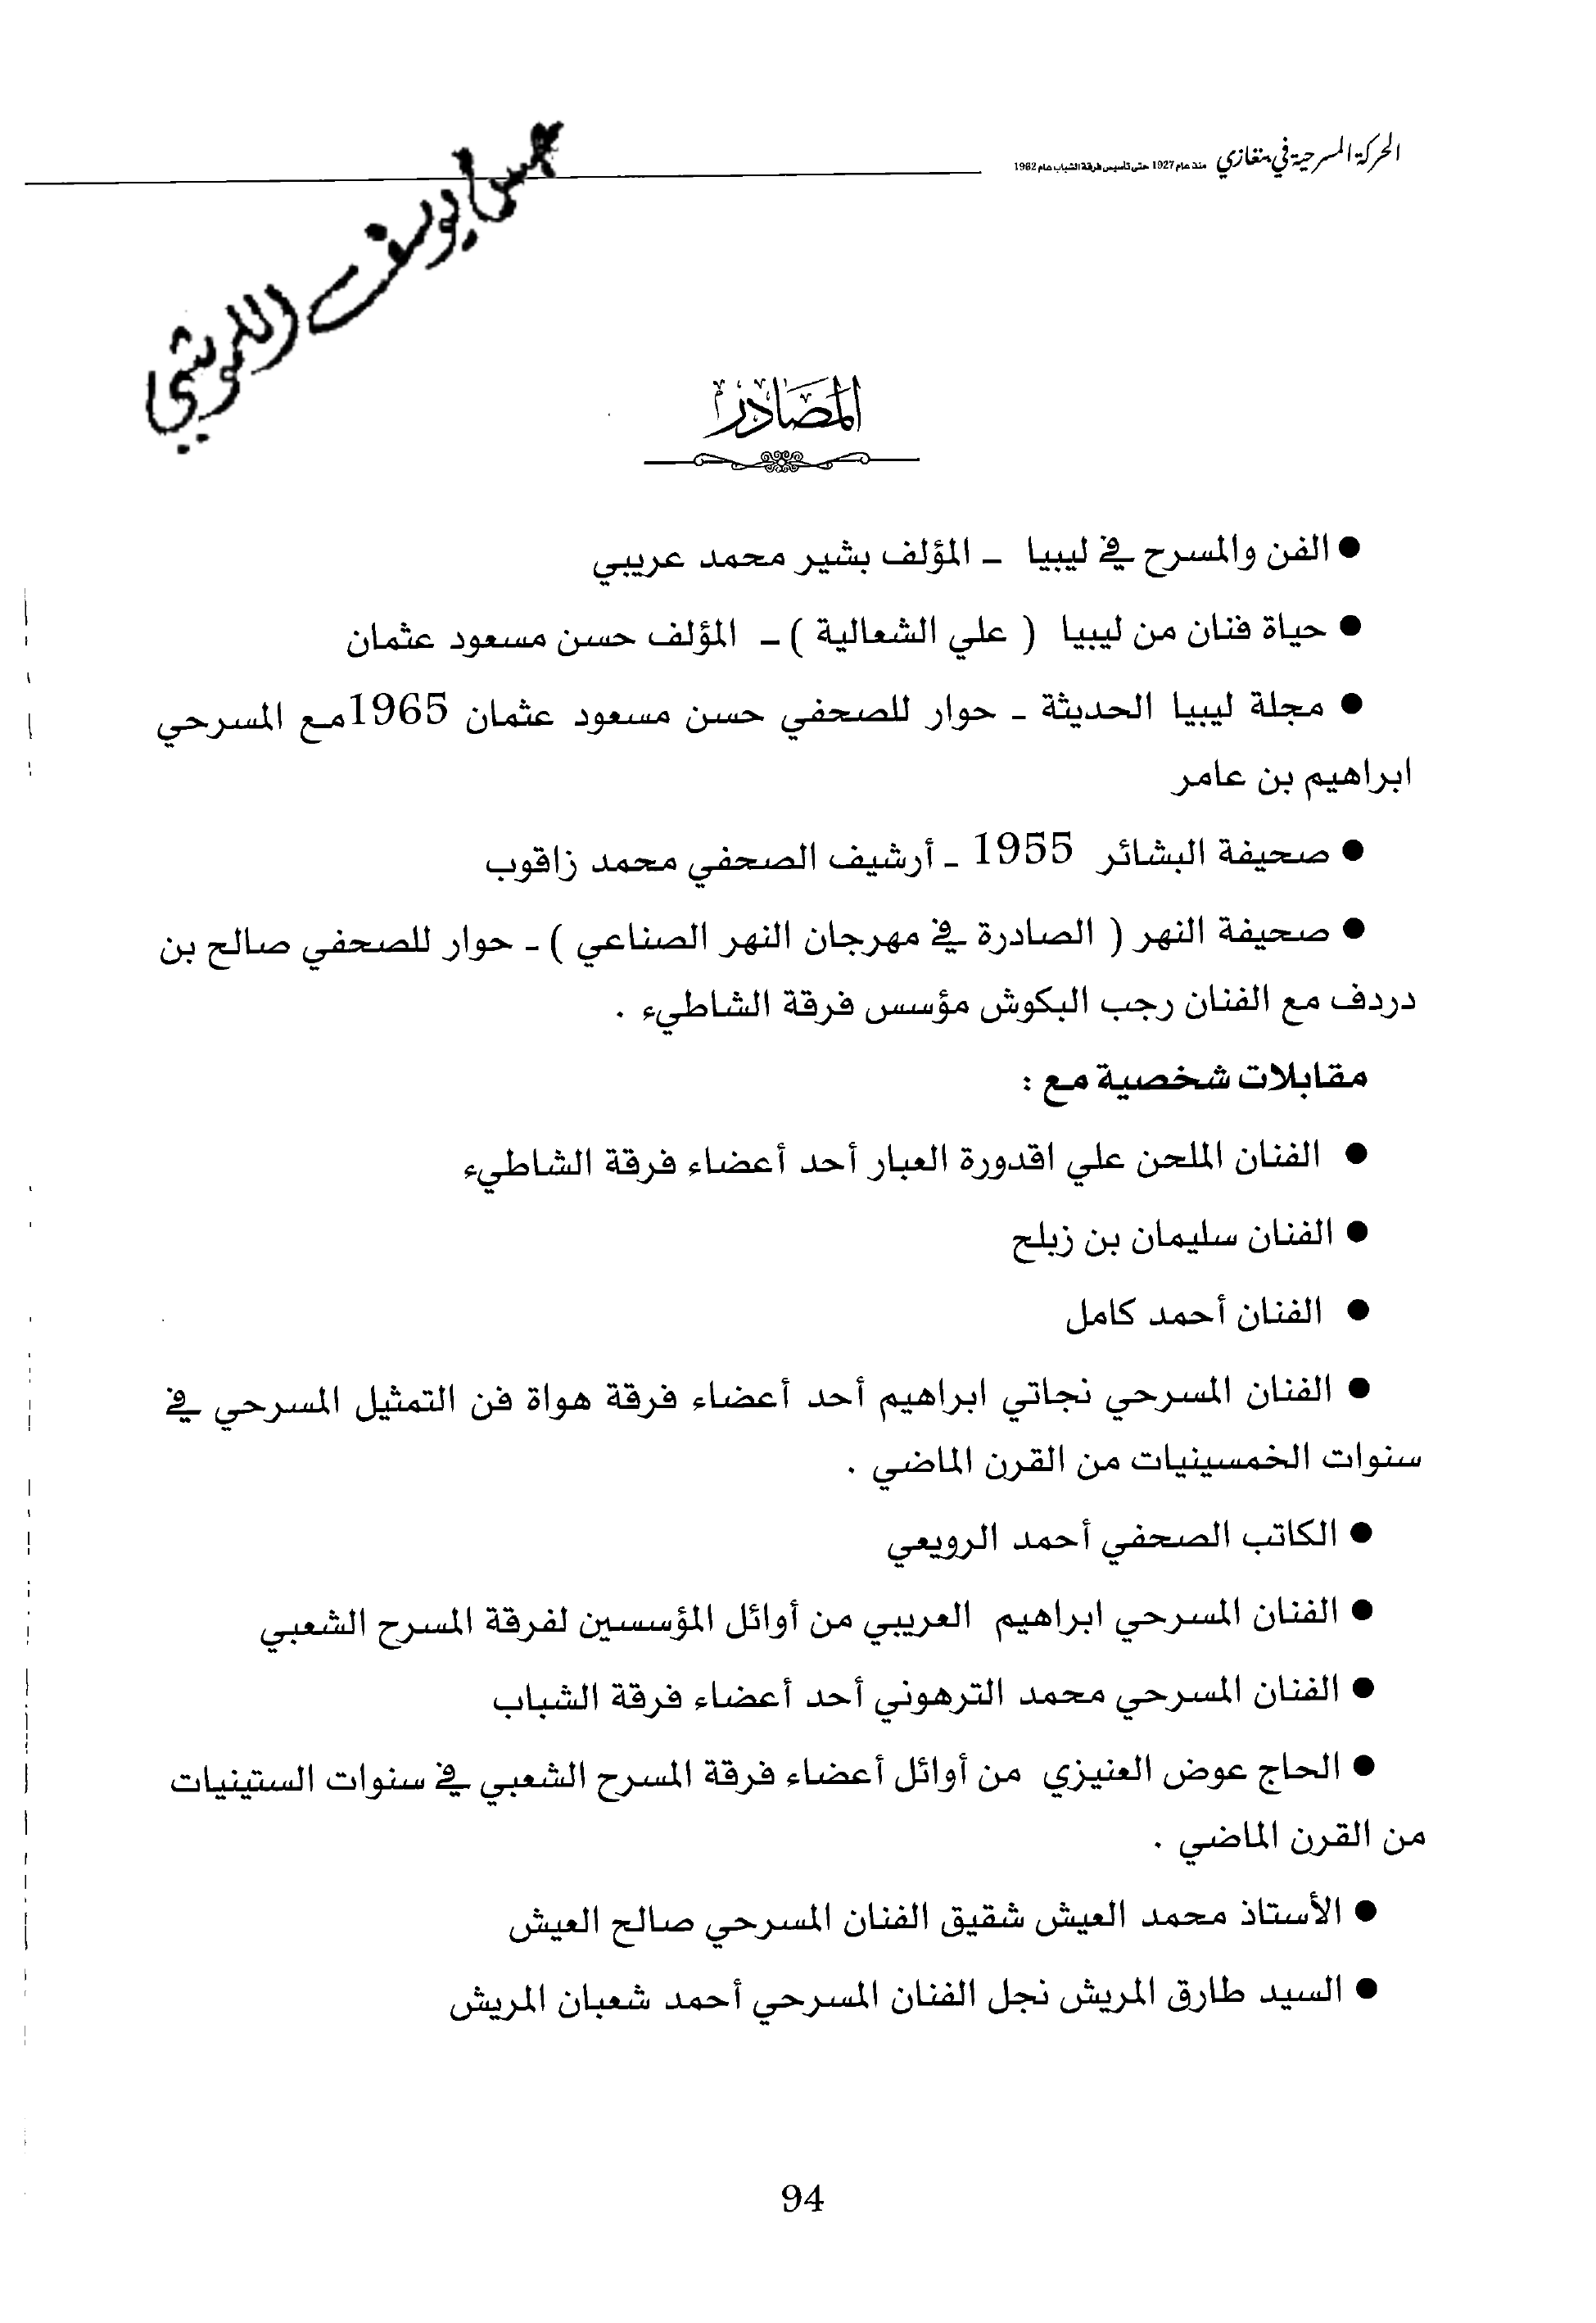 الحركة المسرحية في بنغازي منذ عام 1927 حتى تأسيس فرقة الشباب عام 1962
يوسف
المصادر
● الفن والمسرح في ليبيا – المؤلف بشير محمد عريبي
● حياة فنان من ليبيا ( علي الشعالية ) – المؤلف حسن مسعود عثمان
● مجلة ليبيا الحديثة - حوار للصحفي حسن مسعود عثمان 1965مع المسرحي
ابراهيم بن عامر
● صحيفة البشائر 1955 - أرشيف الصحفي محمد زاقوب
● صحيفة النهر ( الصادرة في مهرجان النهر الصناعي ) - حوار للصحفي صالح بن
دردف مع الفنان رجب البكوش مؤسس فرقة الشاطيء .
مقابلات شخصية مع :
● الفنان الملحن علي اقدورة العبار أحد أعضاء فرقة الشاطيء
● الفنان سليمان بن زبلح
● الفنان أحمد كامل
● الفنان المسرحي نجاتي ابراهيم أحد أعضاء فرقة هواة فن التمثيل المسرحي في
سنوات الخمسينيات من القرن الماضي .
● الكاتب الصحفي أحمد الرويعي
● الفنان المسرحي ابراهيم العريبي من أوائل المؤسسين لفرقة المسرح الشعبي
● الفنان المسرحي محمد الترهوني أحد أعضاء فرقة الشباب
● الحاج عوض العنيزي من أوائل أعضاء فرقة المسرح الشعبي في سنوات الستينيات
من القرن الماضي .
● الأستاذ محمد العيش شقيق الفنان المسرحي صالح العيش
● السيد طارق المريش نجل الفنان المسرحي أحمد شعبان المريش
94